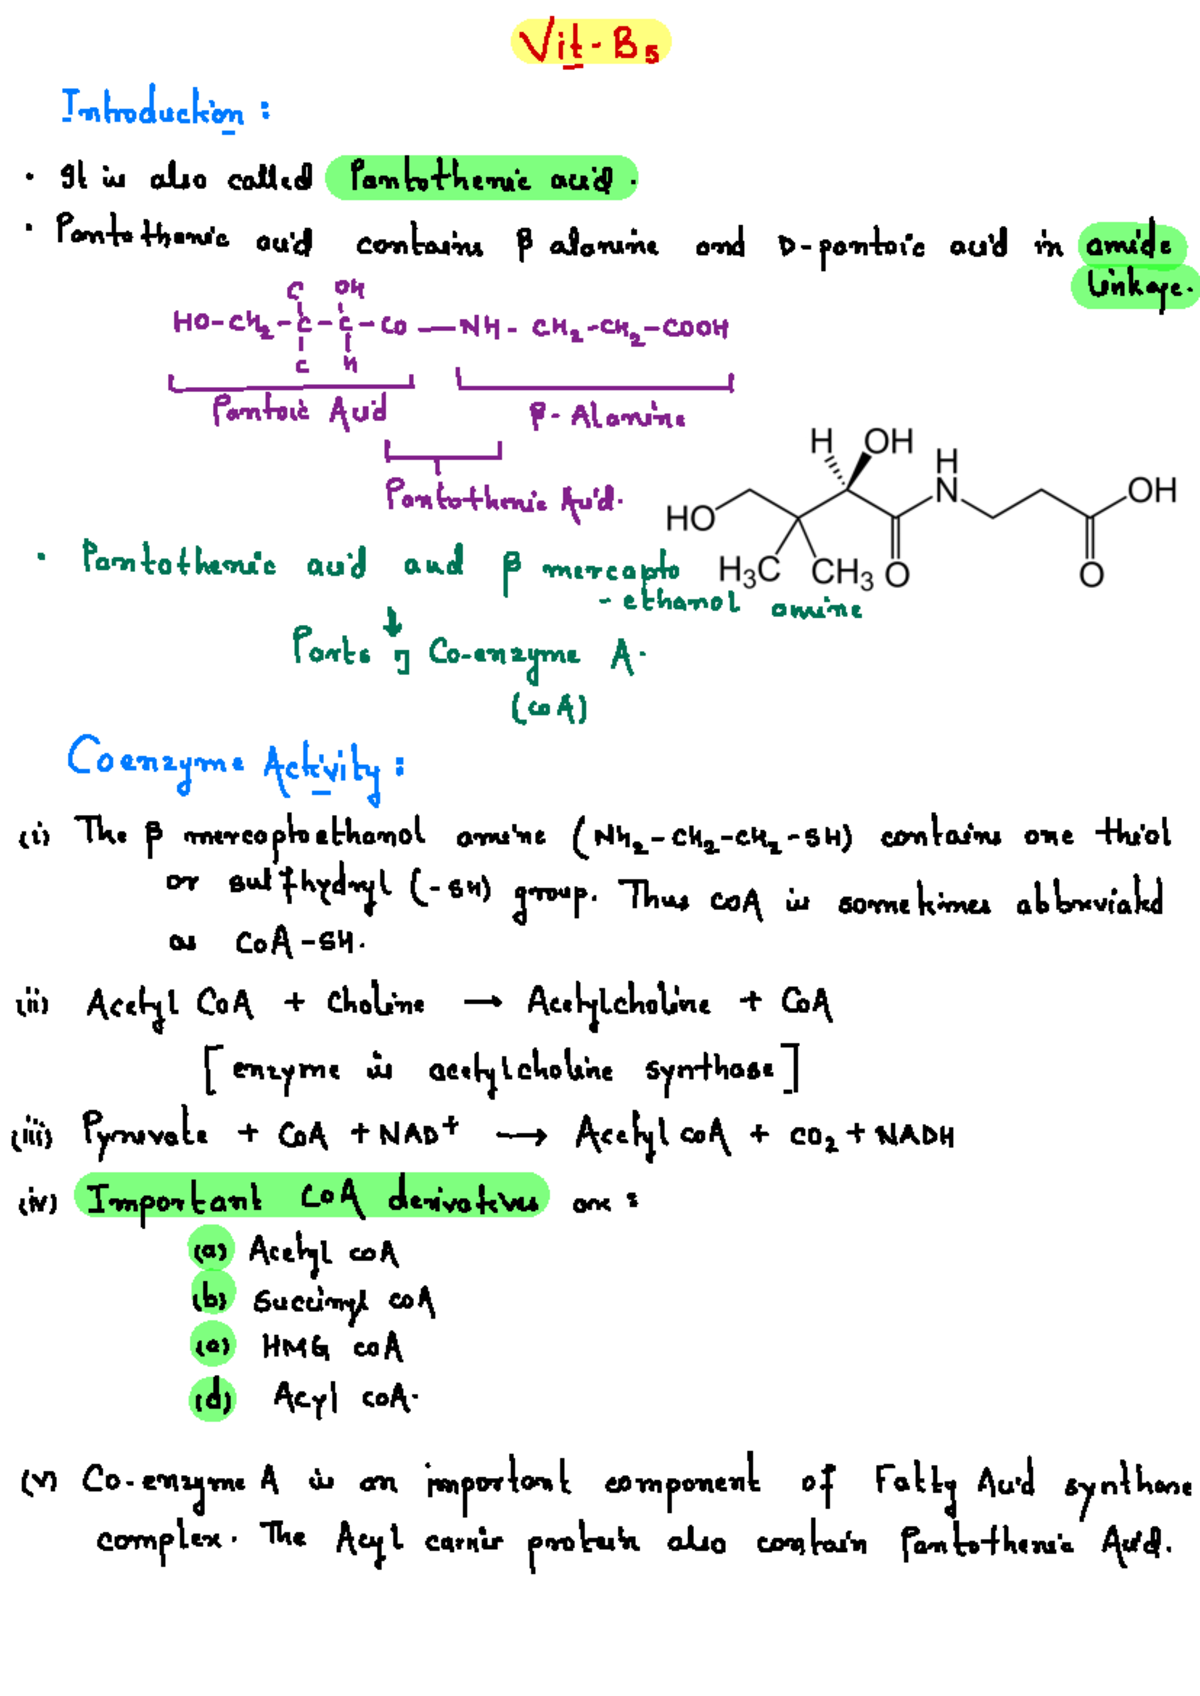 Vit-B5
Introduction :
· It is also called Pantothenic acid.
· Pantothenic acid contains β alanine and D-pantoic acid in amide
linkage.
C OH
HO-CH2-C-C-CO—NH-CH2-CH2-COOH
C H
Pantoic Acid β-Alanine
Pantothenic Acid.
H OH H
N OH
HO
H3C CH3 O O
· Pantothenic acid and β mercapto
-ethanol amine
↓
Parts of Co-enzyme A.
(CoA)
Coenzyme Activity :
(i) The β mercaptoethanol amine (NH2-CH2-CH2-SH) contains one thiol
or sulfhydryl (-SH) group. Thus CoA is sometimes abbreviated
as CoA-SH.
(ii) Acetyl CoA + Choline → Acetylcholine + CoA
[enzyme is acetylcholine synthase]
(iii) Pyruvate + CoA + NAD+ → Acetyl CoA + CO2 + NADH
(iv) Important CoA derivatives are :
(a) Acetyl CoA
(b) Succinyl CoA
(c) HMG CoA
(d) Acyl CoA.
(v) Co-enzyme A is an important component of Fatty Acid synthase
complex. The Acyl carrier protein also contain Pantothenic Acid.